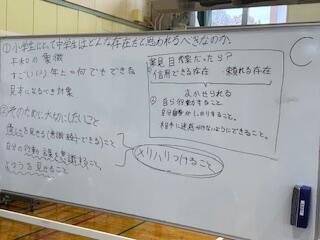 ①小学生にとって中学生はどんな存在だと思われるべきなのか。
平和の象徴
すごい(い)年上の何でもできる
見本になるべき対象
②そのために大切にしたいこと
できる)こと
自分の行動
を意識すること。
を見せること
メリハリつけること
意見 授業だったら?
信用できる存在 頼れる存在
まかせられる
自分で行動すること
自分自身がしっかりする。
相手に迷惑かけないようにできること。
C